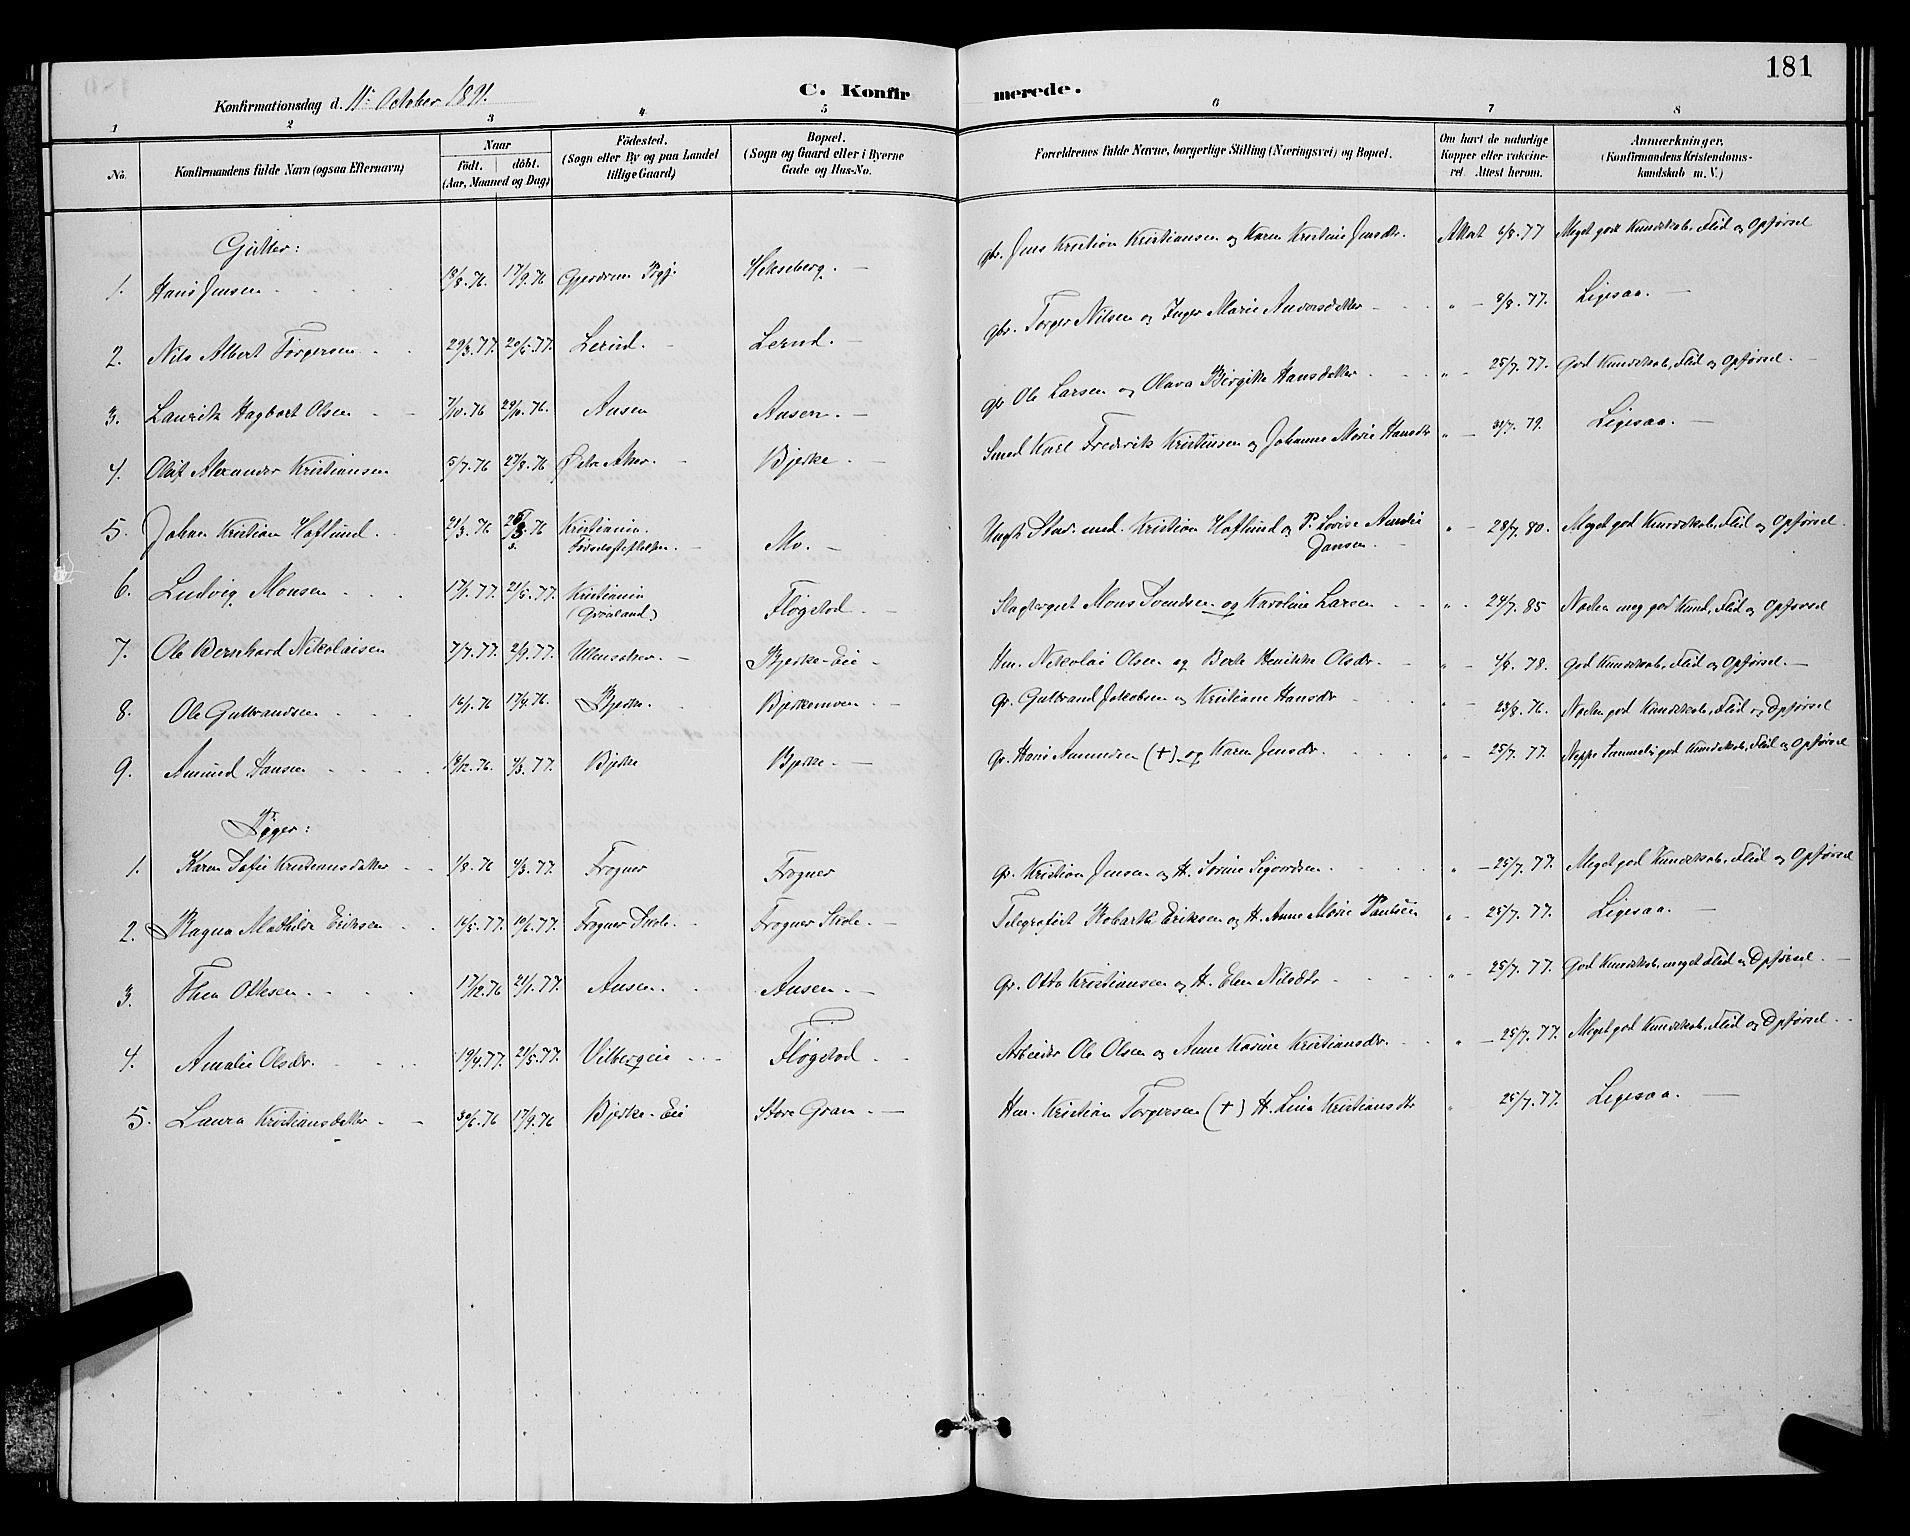 181
Konfirmationsdag d. 11te October 1891.
C. Konfirmerede.
1 2 3 4 5 6 7 8
No.
Konfirmandens fulde Navn (ogsaa Efternavn)
Naar
födt. döbt.
(Aar, Maaned og Dag)
Födested.
(Sogn eller By og paa Landet
tillige Gaard)
Bopæl.
(Sogn og Gaard eller i Byerne
Gade og Hus-No.
Forældrenes fulde Navne, borgerlige Stilling (Næringsvei) og Bopæl.
Om havt de naturlige
Kopper eller vaccine-
ret. Attest herom.
Anmærkninger.
(Konfirmandens Kristendoms-
kundskab m. V.)
Gutter:
1. Hans Jensen 18/8.76. 17/9.76 Gjerdrum Pgj. Hekseberg. — gbr. Jens Kristian Kristiansen og Karen Kristine Jensdr. Attest 6/8.77 Meget god Kundskab, Flid og Opførsel
2. Nils Albert Torgersen 29/3.77. 20/5.77. Lerud. — Lerud. — gbr. Torger Nilsen og Inger Marie Andersdatter " — 8/8.77. Ligesaa. —
3. Laurits Hagbart Olsen 7/10.76 29/10.76. Ausen Ausen. — gbr Ole Larsen og Olava Birgitte Hansdatter " — 25/7.77. God Kundskab, Flid og Opførsel. —
4. Olaf Alexander Kristiansen 5/7.76 27/8.76 Østre Aker. — Bjerke. — Smed Karl Frederik Kristiansen og Johanne Marie Hansdr " — 31/7.79. Ligesaa. —
5. Johan Kristian Hoflund. 21/3.76 .76 Kristiania. Mo. — Kristian Hoflund og P. Lovise Amalie
Fødselsstiftelsen. — Jansen. — " — 28/7.80. Meget god Kundskab, Flid og Opførsel.
6. Ludvig Monsen 17/1.77. 21/5.77. Kristiania
(Grønland) Fløgstad. — Mons Svendsen og Karoline Larsen " — 24/7.85 Noden meg. god Kund., Flid og Opførsel
7. Ole Bernhard Nikolaisen 7/7.77. 2/9.77. Ullensaker. — Bjerke-Eie — Hm. Nikolai Olsen og Berte Henrikke Olsdr. " — .78. God Kundskab, Flid og Opførsel. —
8. Ole Gulbrandsen 16/1.76 17/4.76. Bjerke. — Bjerkemoen. — gbr. Gulbrand Jakobsen og Kristiane Hansdr " — 23/8.76. Noden god Kundskab, Flid og Opførsel
9. Amund Hansen 18/12.76. 4/3.77. Bjerke Bjerke. — gbr. Hans Amundsen (+) og Karen Jensdr. " — 25/7.77. Neppe god Kundskab, Flid og Opførsel
Piger:
1. Karen Sofie Kristiansdatter 1/8.76 4/3.77. Frogner Frogner gbr. Kristian Jensen og H. Sørine Sigvardsen. " — 25/7.77. Meget god Kundskab, Flid og Opførsel
2. Ragna Mathilde Eriksen 16/5.77. 10/6.77. Frogner Skole. Frogner Skole. — Telegrafist Eriksen og H. Anne Marie Paulsen " 25/7.77. Ligesaa. —
3. Thea Ottesen. 17/12.76 21/1.77. Ausen. — Ausen. — gbr. Otto Kristiansen og H. Elen Nilsdtr " — 25/7.77. God Kundskab, meget Flid og Opførsel. —
4. Amalie Olsdr. 19/4.77. 21/5.77. Vilbergeie Fløgstad. Arbeider Ole Olsen og Anne Karine Kristiansdr. " — 25/7.77. Meget god Kundskab, Flid og Opførsel.
5. Laura Kristiansdatter. 30/6.76 17/9.76 Bjerke-Eie Store Gran. — Hm. Kristian Torgersen (+) H. Lina Kristiansdtr " 25/7.77. Ligesaa. —